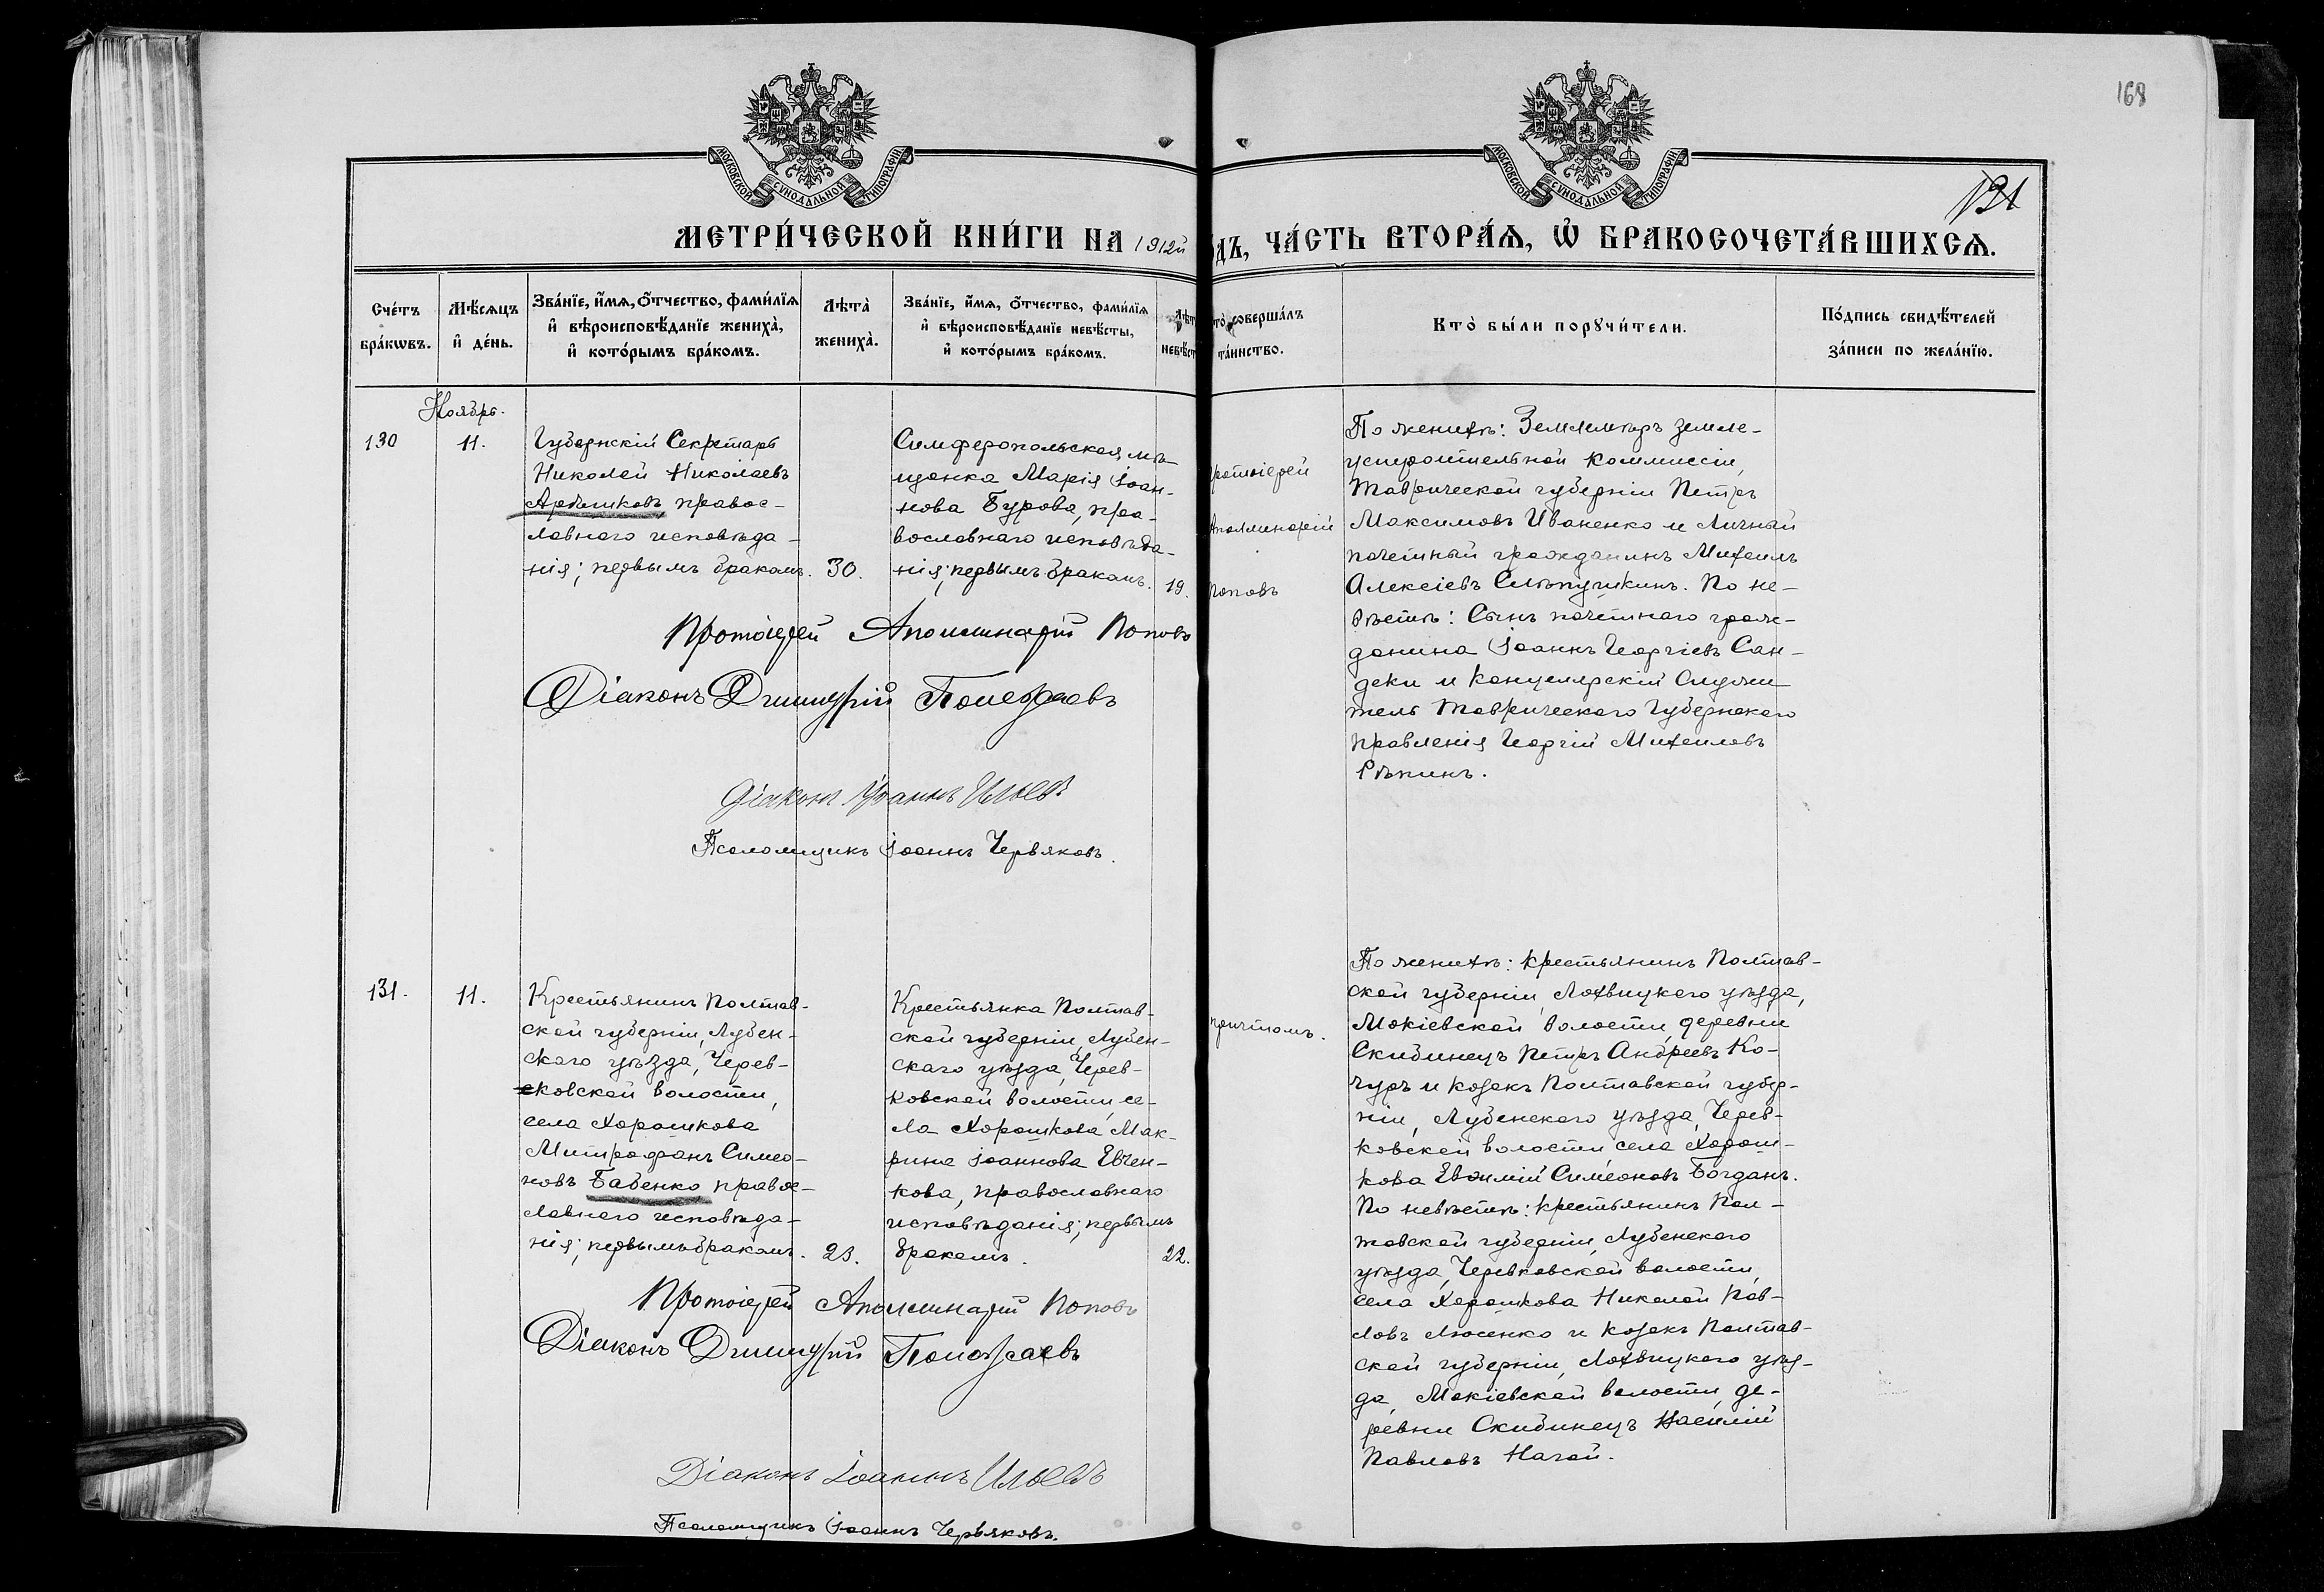 168
131
МОСКОВСКОЙ СѴНОДАЛЬНОЙ ТИПОГРАФІИ
МОСКОВСКОЙ СѴНОДАЛЬНОЙ ТИПОГРАФІИ
МЕТРИ́ЧЕСКОЙ КНИ́ГИ НА 1912й
ДЪ, ЧА́СТЬ ВТОРА́Ѧ, Ѡ БРАКОСОЧЕТА́ВШИХСѦ.
Сче́тъ бра́кѡвъ.
Мѣ́сѧцъ и҆ де́нь.
Зва́нїе, и҆́мѧ, ѻ҆́тчество, фами́лїѧ
и҆ вѣроисповѣ́данїе жениха̀,
и҆ кото́рымъ бра́комъ.
Лѣта̀ жениха̀.
Зва́нїе, и҆́мѧ, ѻ҆́тчество, фами́лїѧ
и҆ вѣроисповѣ́данїе невѣ́сты,
и҆ кото́рымъ бра́комъ.
Лѣт
невѣ́ст
то̀ соверша́лъ
та́инство.
Кто̀ бы́ли порꙋчи́тели.
По́дпись свидѣ́телей
за́писи по жела́нїю.
Ноябрь.
130
11.
Губернскій Секретарь
Николай Николаевъ
правос-
лавнаго исповѣда-
нія; первымъ бракомъ.
30.
Симферопольская мѣ-
щанка Марія Іоан-
нова Бурова, пра-
вославнаго исповѣда-
нія; первымъ бракомъ.
19.
ротоіерей
Аполлинарій
Поповъ
По женихѣ: Землемѣръ земле-
устроительной коммиссіи,
Таврической губерніи Петръ
Максимовъ Иваненко и Личный
почетный гражданинъ Михаилъ
Алексіевъ Слѣпушкинъ. По не-
вѣстѣ: Сынъ почетнаго граж-
данина Іоаннъ Георгіевъ Сан-
деки и Канцелярскій Служи-
тель Таврическаго Губернскаго
Правленія Георгій Михаиловъ
Рѣпинъ.
Протоіерей Аполлинарій Поповъ
Діаконъ Димитрій
Діаконъ Іоаннъ Ильевъ
Псаломщикъ Іоаннъ Червяковъ.
131.
11.
Крестьянинъ Полтав-
ской губерніи, Лубен-
скаго уѣзда, Черев-
ковской волости,
села Хорошкова
Митрофанъ Симео-
новъ Бабенко, правос-
лавнаго исповѣда-
нія; первымъ бракомъ.
23.
Крестьянка Полтав-
ской губерніи, Лубен-
скаго уѣзда, Черев-
ковской волости, се-
ла Хорошкова, Мак-
рина Іоаннова Евчен-
кова, православнаго
исповѣданія; первымъ
бракомъ.
22.
причтомъ.
По женихѣ: крестьянинъ Полтав-
ской губерніи, Лохвицкаго уѣзда,
Мокіевской волости, деревни
Скибинецъ Петръ Андреевъ Ко-
чуръ и козакъ Полтавской губер-
ніи, Лубенскаго уѣзда, Черев-
ковской волости села Хорош-
кова Евѳимій Симеоновъ Богданъ.
По невѣстѣ: крестьянинъ Пол-
тавской губерніи, Лубенскаго
уѣзда, Черевковской волости,
села Хорошкова Николай Пав-
ловъ Люсенко и козакъ Полтав-
ской губерніи, Лохвицкаго уѣз-
да, Мокіевской волости, де-
ревни Скибинецъ Василій
Павловъ Нагай.
Протоіерей Аполлинарій Поповъ
Діаконъ Димитрій
Діаконъ Іоаннъ Ильевъ
Псаломщикъ Іоаннъ Червяковъ.